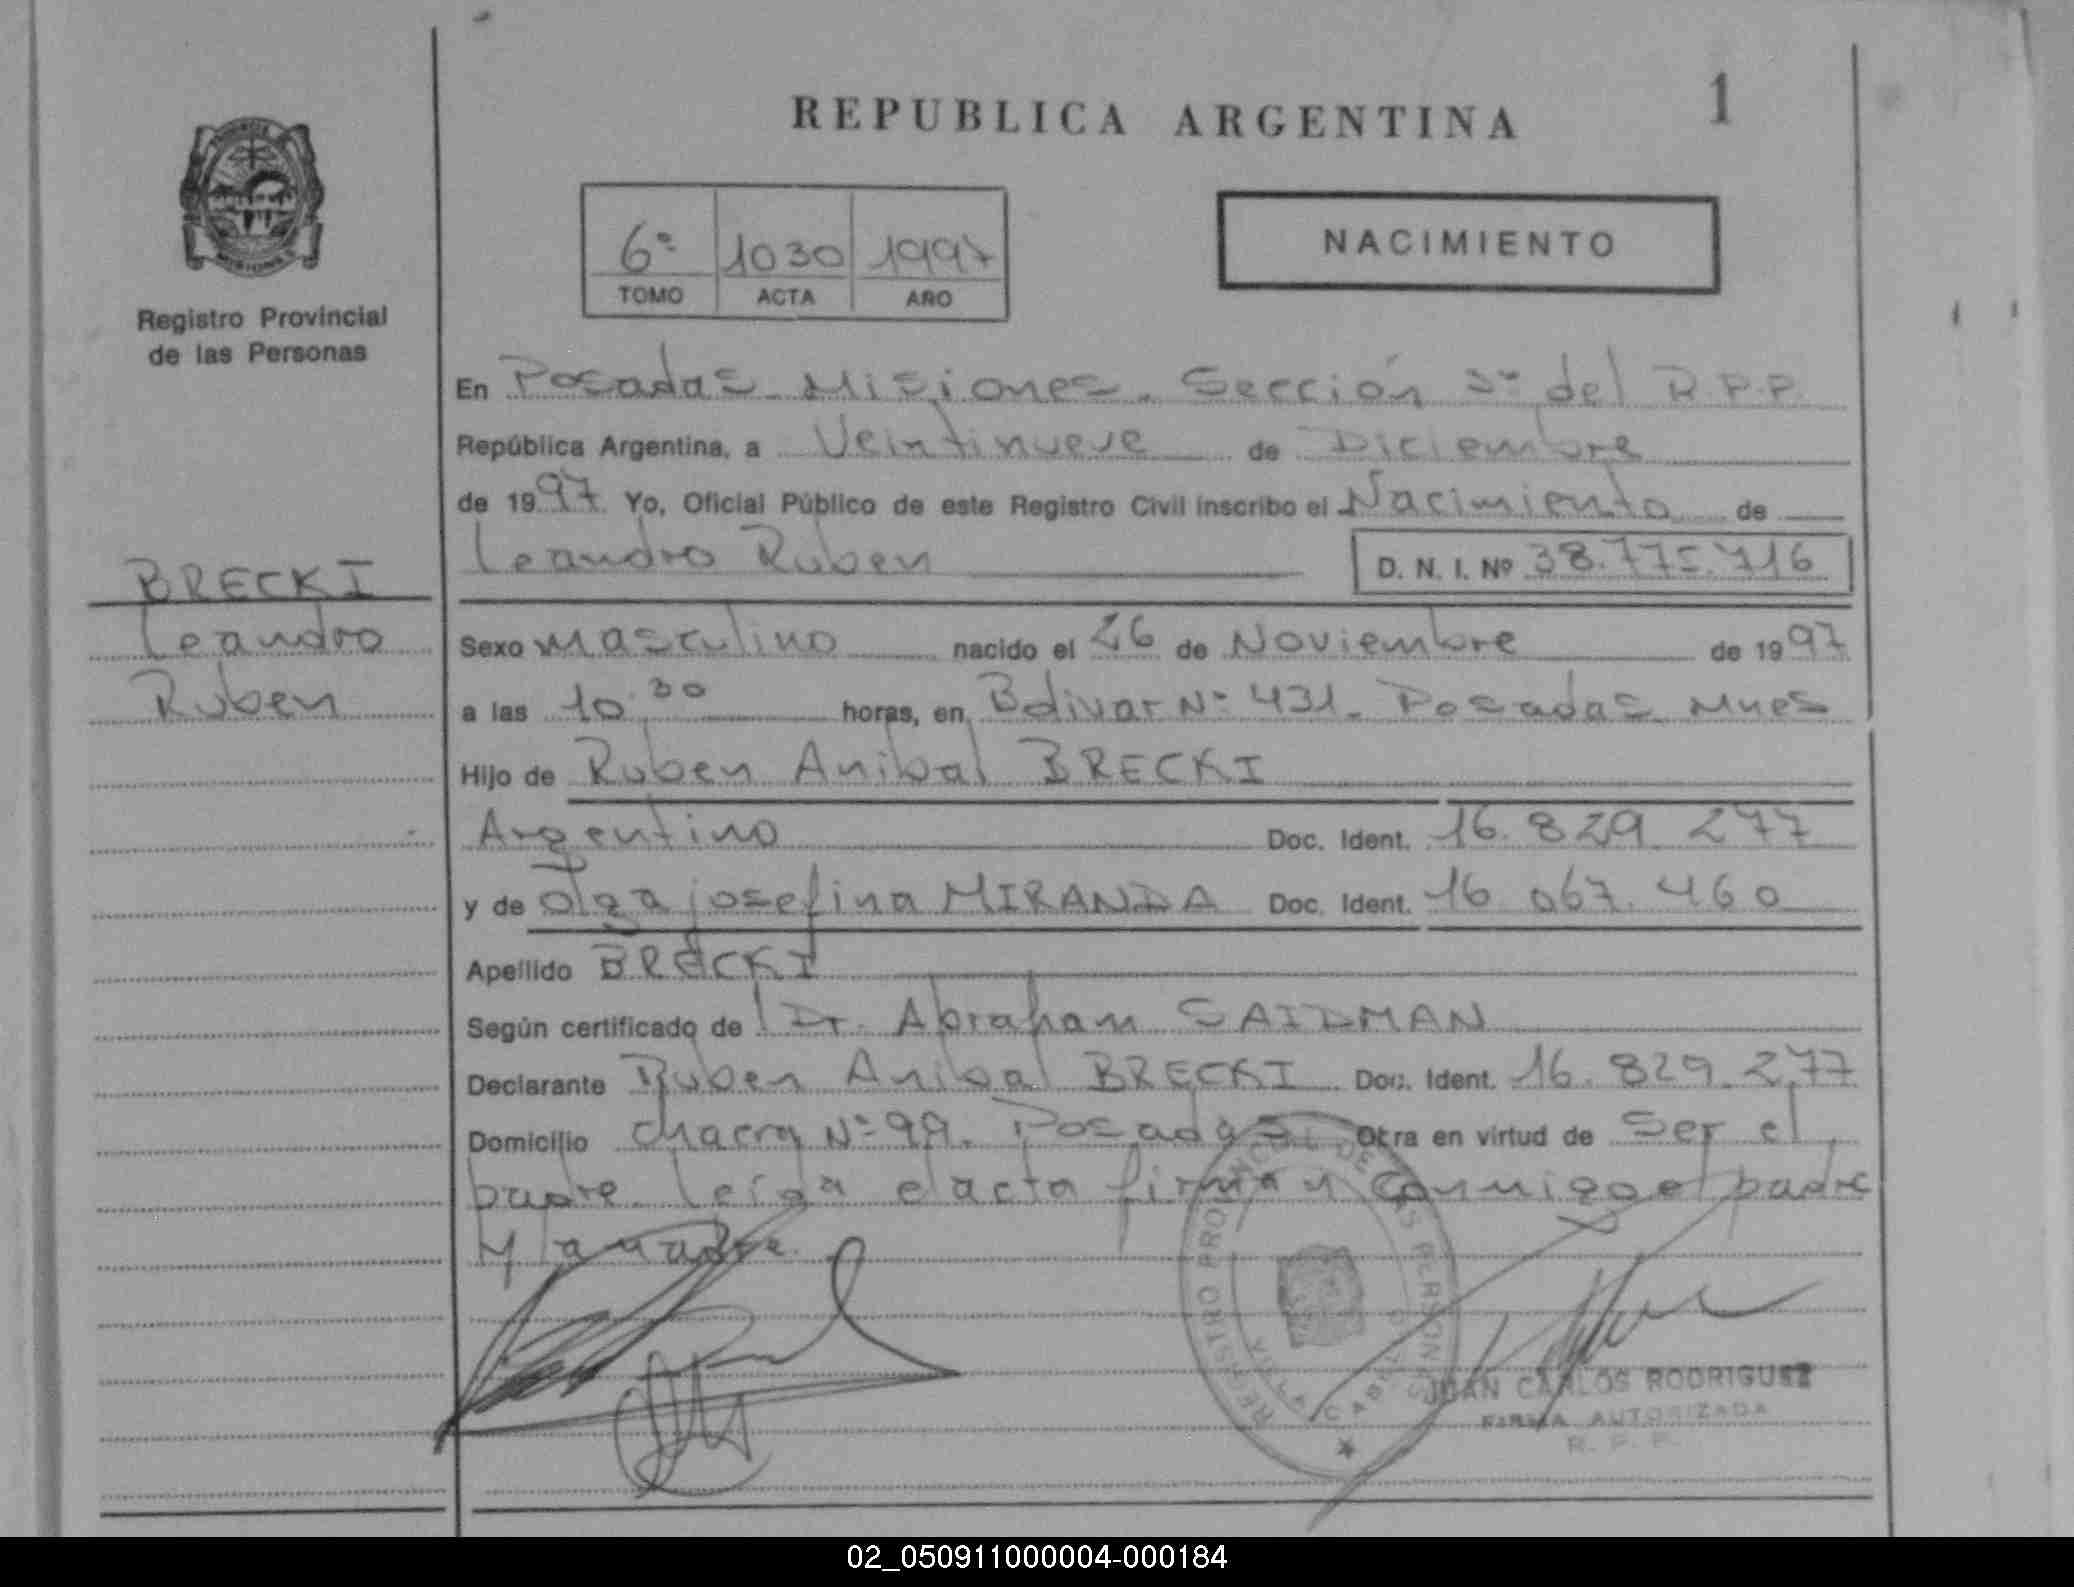 REPUBLICA ARGENTINA
1
Registro Provincial
de las Personas
6º 1030 1997
TOMO ACTA AÑO
NACIMIENTO
En Posadas Misiones. Sección 5º del R.P.P.
República Argentina, a Veintinueve de Diciembre
de 1997 Yo, Oficial Público de este Registro Civil inscribo el Nacimiento de
Leandro Ruben D. N. I. Nº 38.775.716
BRECKI
Leandro
Ruben
Sexo masculino nacido el 26 de Noviembre de 1997
a las 10.30 horas, en Bolivar Nº 431. Posadas Mnes
Hijo de Ruben Anibal BRECKI
Argentino Doc. Ident. 16.829.277
y de Olga josefina MIRANDA Doc. Ident. 16.067.460
Apellido BRECKI
Según certificado de Dr. Abraham SAIDMAN
Declarante Ruben Anibal BRECKI Doc. Ident. 16.829.277
Domicilio chacra Nº 99. Posadas Obra en virtud de ser el
padre. Leída el acta firman conmigo el padre
y la madre.
REGISTRO PROVINCIAL DE LAS PERSONAS
VILLA CABELLO
JUAN CARLOS RODRIGUEZ
FIRMA AUTORIZADA
R. P. P.
02_050911000004-000184